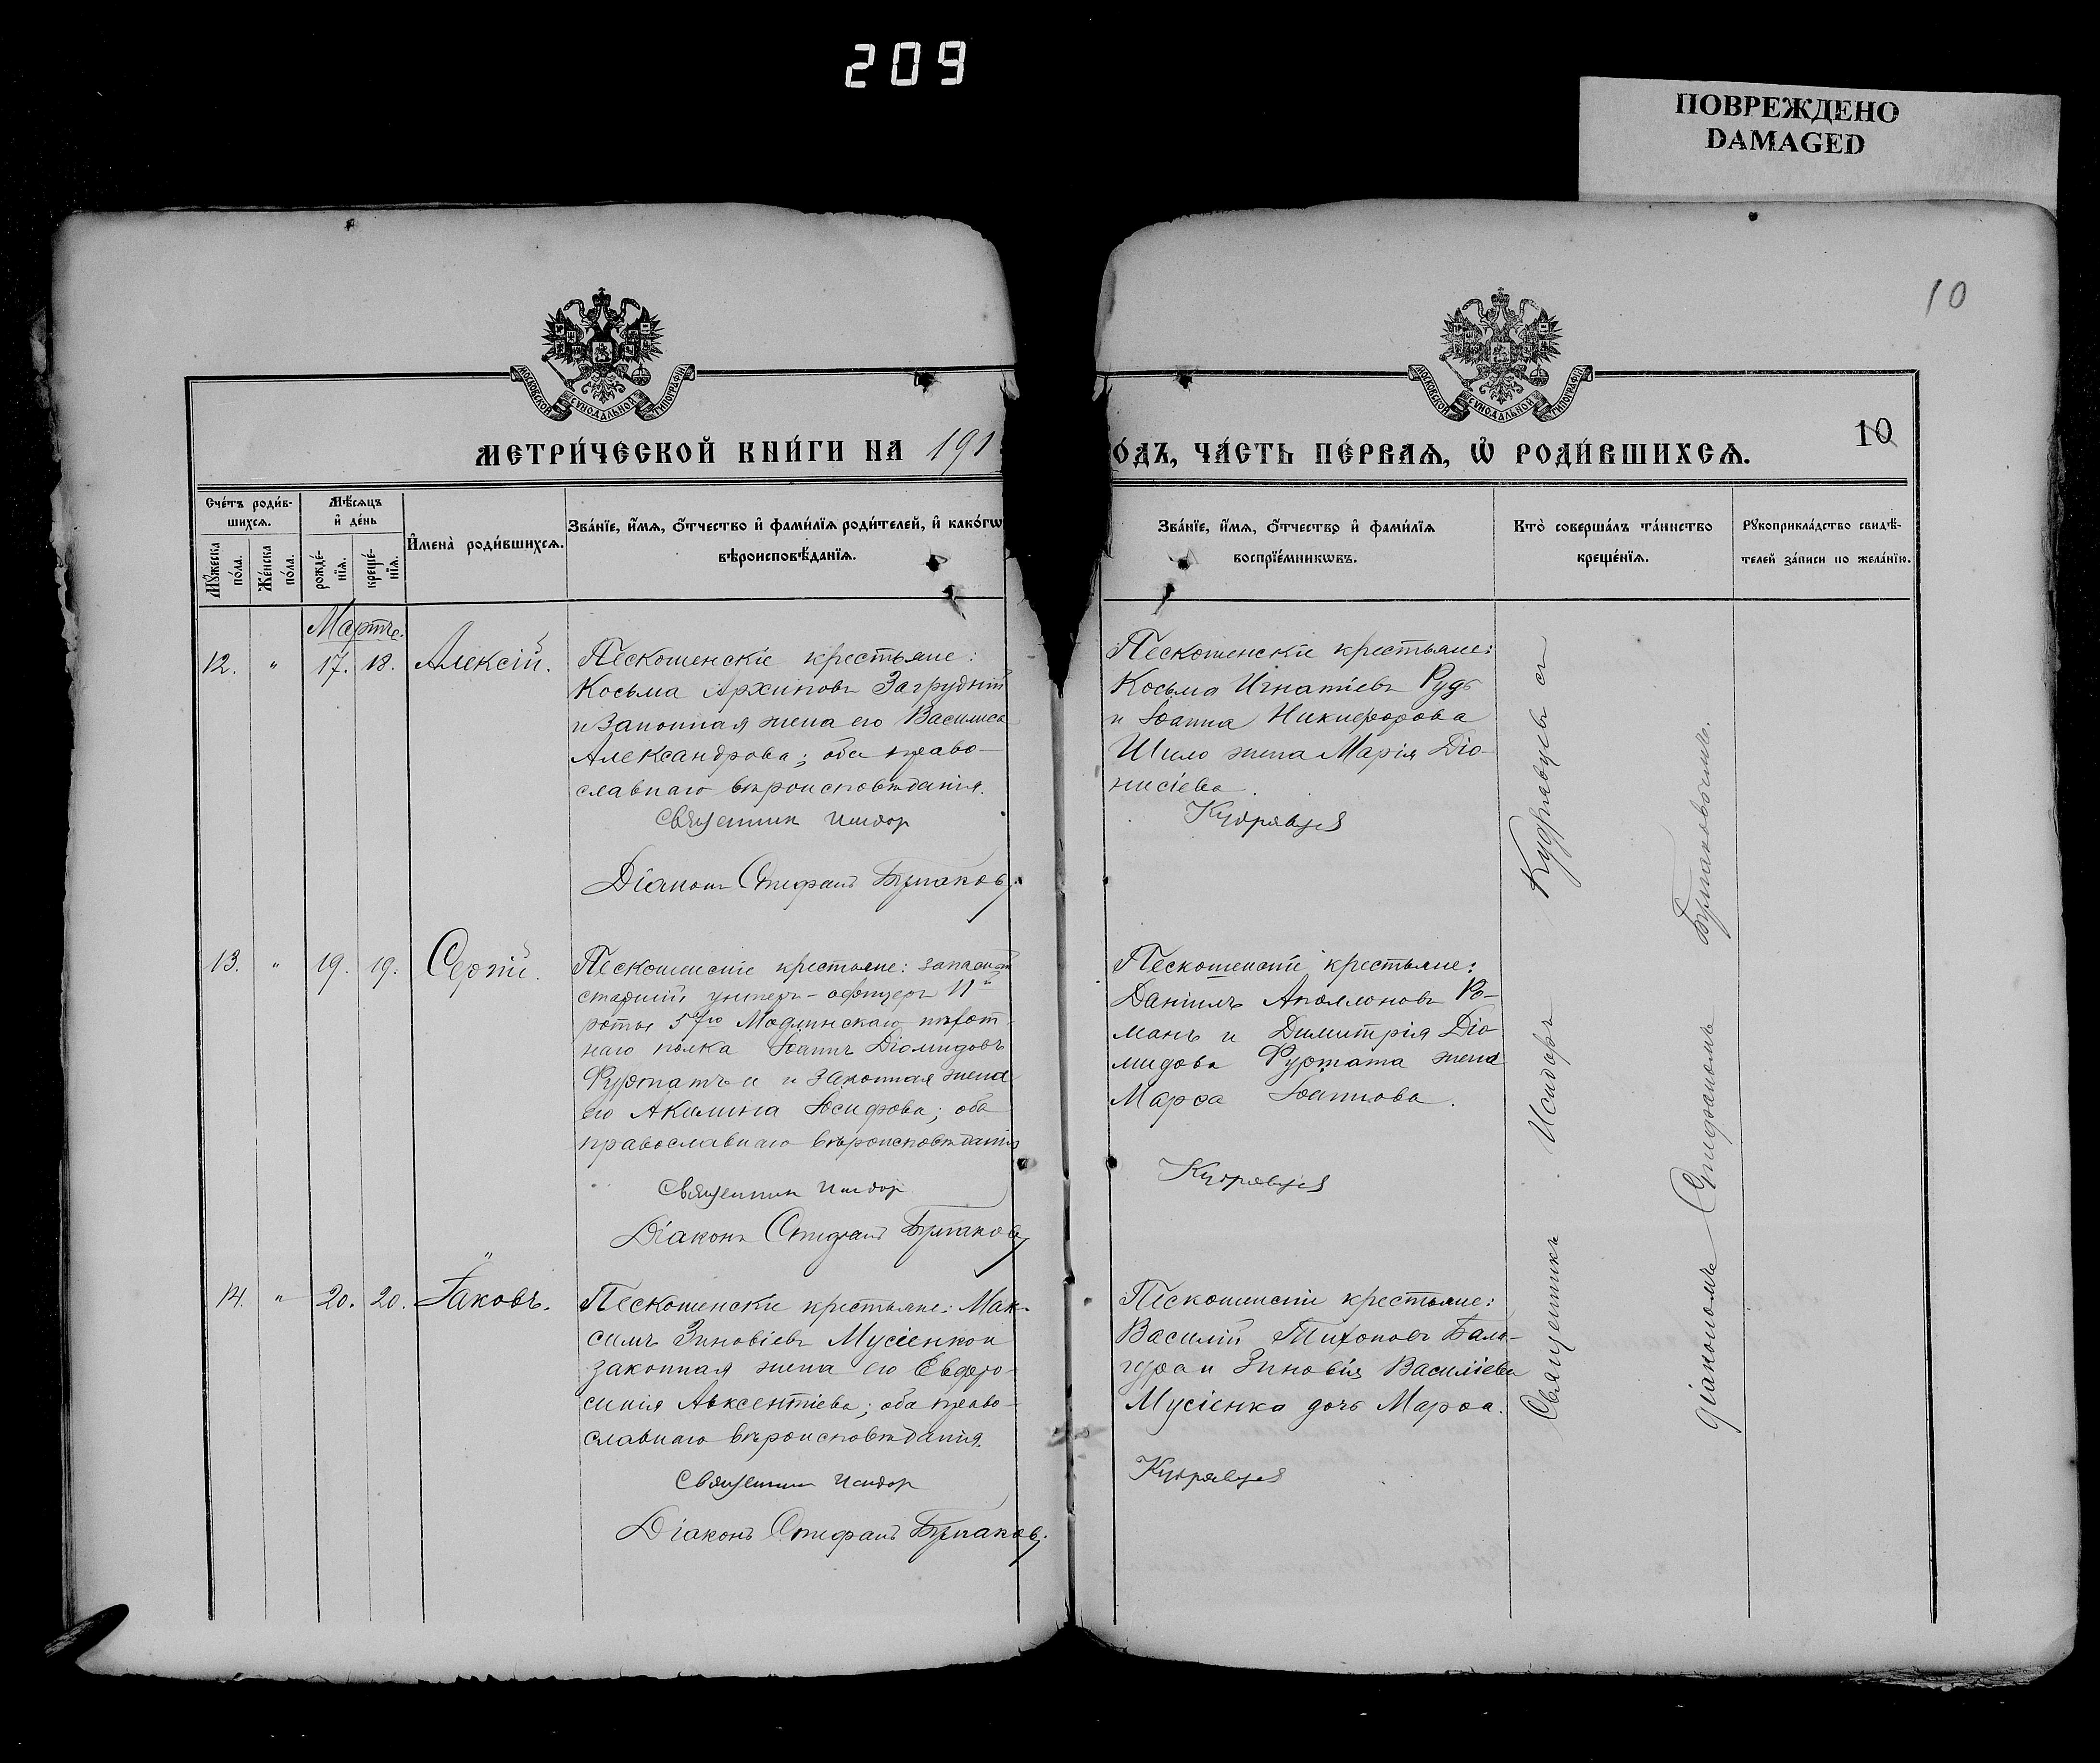 209
ПОВРЕЖДЕНО
DAMAGED
10
МОСКОВСКОЙ СѴНОДАЛЬНОЙ ТИПОГРАФІИ
МОСКОВСКОЙ СѴНОДАЛЬНОЙ ТИПОГРАФІИ
МЕТРИ́ЧЕСКОЙ КНИ́ГИ НА 191
О́ДЪ, ЧА́СТЬ ПЕ́РВАѦ, Ѡ҆ РОДИ́ВШИХСѦ.
10
Сче́тъ роди́в-
шихсѧ.
Мꙋ́жеска по́ла.
Же́нска по́ла.
Мѣ́сѧцъ
и҆ де́нь
рожде́-
нїѧ.
креще́-
нїѧ.
И҆мена̀ роди́вшихсѧ.
Зва́нїе, и҆́мѧ, ѻ҆́тчество и҆ фами́лїѧ роди́телей, и҆ како́гѡ
вѣроисповѣ́данїѧ.
Зва́нїе, и҆́мѧ, ѻ҆́тчество и҆ фами́лїѧ
воспрїе́мникѡвъ.
Кто̀ соверша́лъ та́инство
креще́нїѧ.
Рꙋкоприкла́дство свидѣ́-
телей за́писи по жела́нїю.
Мартъ.
12. " 17. 18. Алексій.
Пескошенскіе крестьяне:
Косьма Архиповъ Загрудній
и законная жена его Василиса
Александрова; оба право-
славнаго вѣроисповѣданія.
Священник Исидор
Діакон Стефанъ Бѹтаковъ
Пескошенскіе крестьяне:
Косьма Игнатіевъ Рудь
и Іоанна Никифорова
Шило жена Марія Діо-
нисіева.
Кудрявцев
13. " 19. 19. Сергій.
Пескошенскіе крестьяне: запасной
старшій унтеръ-офицеръ 11й
роты 57го Модлинскаго пѣхот-
наго полка Іоаннъ Діомидовъ
и законная жена
его Акилина Іосифова; оба
православнаго вѣроисповѣданія
Священник Исидор
Діаконъ Стефанъ
Пескошенскіе крестьяне:
Даніилъ Аполлоновъ Ро-
манъ и Димитрія Діо-
мидова жена
Марѳа Іоаннова.
Кудрявцев
14. " 20. 20. Іаковъ.
Пескошенскіе крестьяне: Мак-
симъ Зиновіевъ Мусіенко и
законная жена его Евфро-
синія Авксентіева; оба право-
славнаго вѣроисповѣданія.
Священник Исидор
Діаконъ Стефанъ
Пескошенскіе крестьяне:
Василій Тихоновъ Бала-
гура и Зиновія Василіева
Мусіенко дочь Марѳа.
Кудрявцев
Священникъ Исидоръ Кудрявцевъ съ
діакономъ Стефаномъ